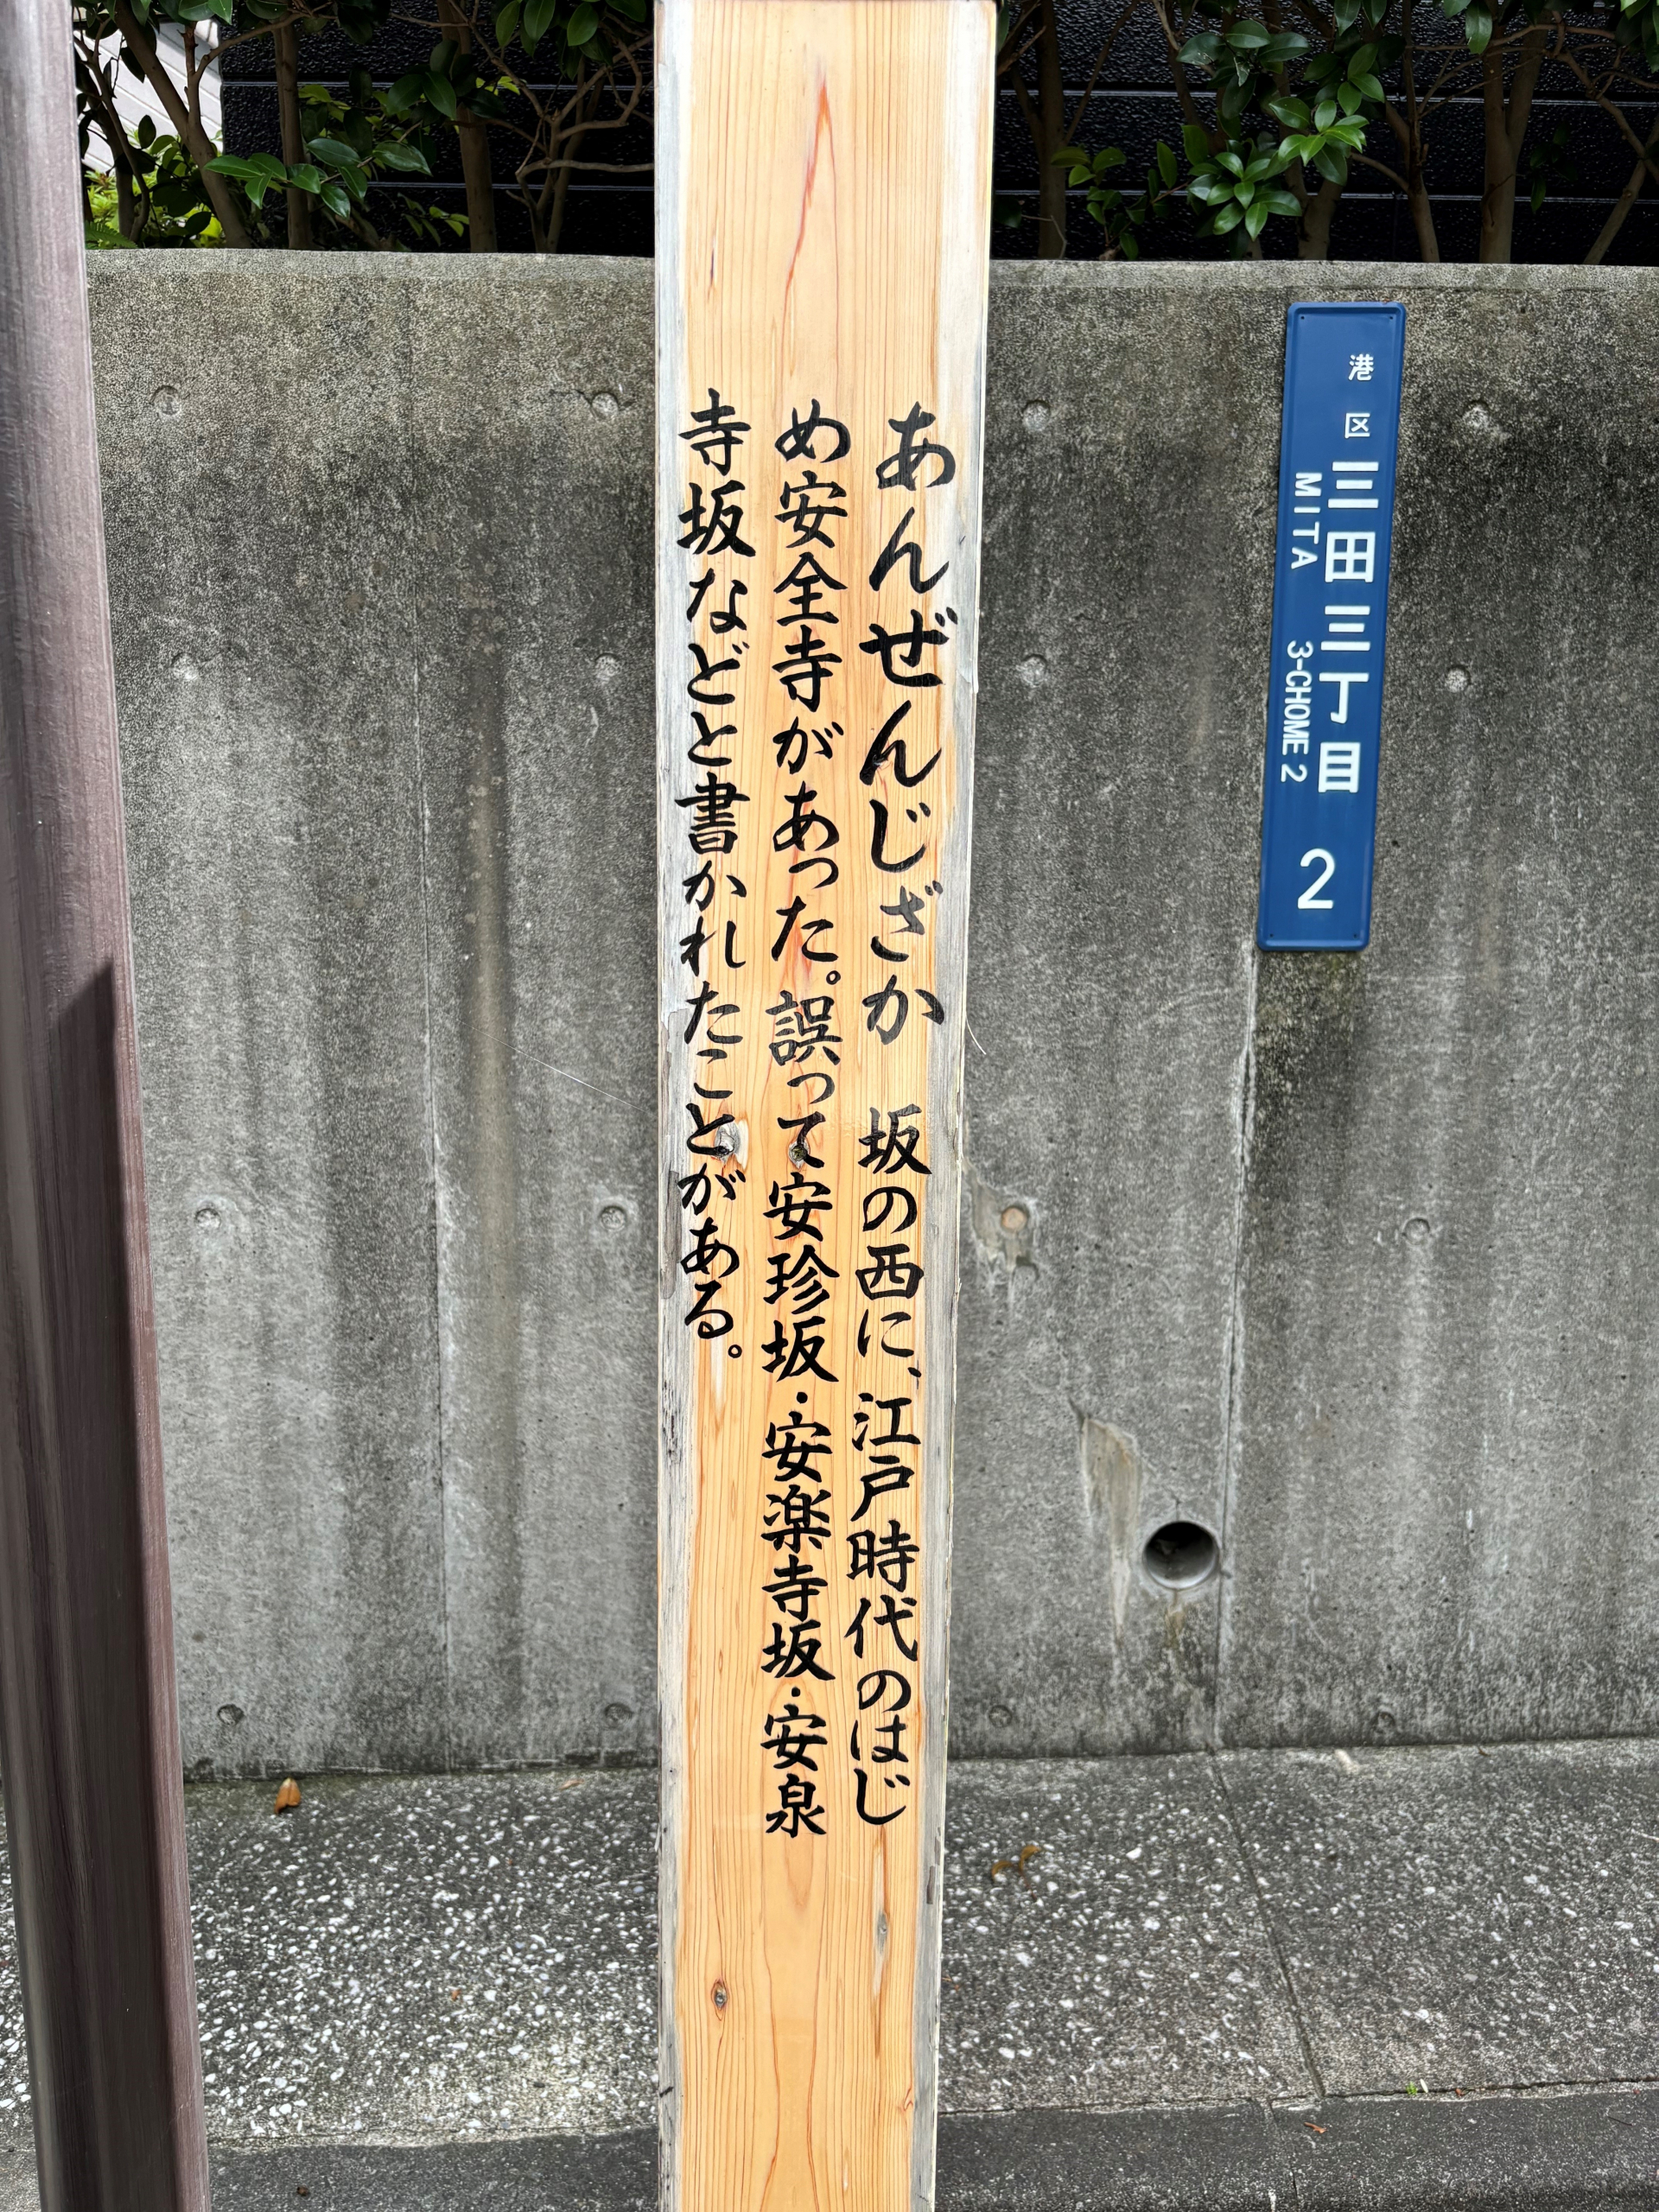 あんぜんじざか 坂の西に、江戸時代のはじ
め安全寺があった。誤って安珍坂・安楽寺坂・安泉
寺坂などと書かれたことがある。
港区三田三丁目 2
MITA 3-CHOME 2